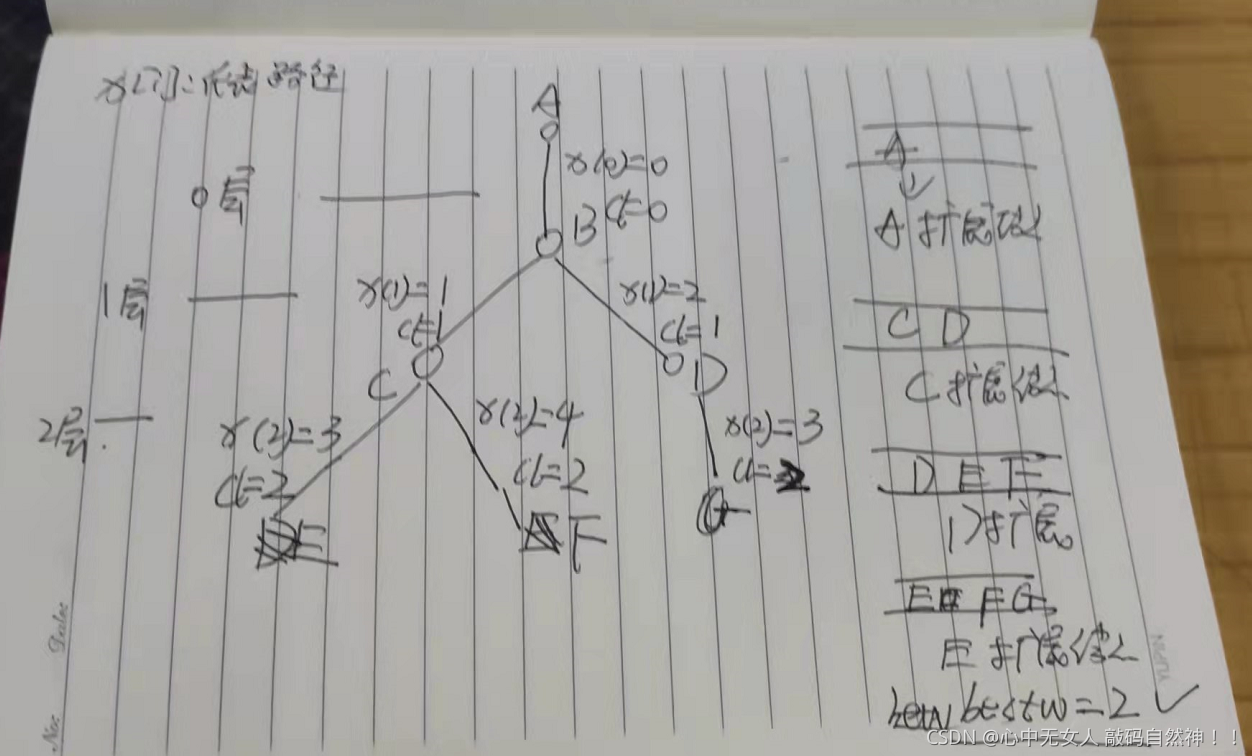 x[i]:代表 路径
A
x(0)=0
0层
cl=0
B
x(1)=1
x(1)=2
1层
cl=1
cl=1
C
D
2层.
x(2)=3
x(2)=4
x(2)=3
cl=2
cl=2
cl=2
E
F
G
A
A扩展
C D
C扩展结点
D E F
D扩展
E F G
E扩展结点
bestw=2 ✓
Date
No
CSDN @心中无女人 敲码自然神！！